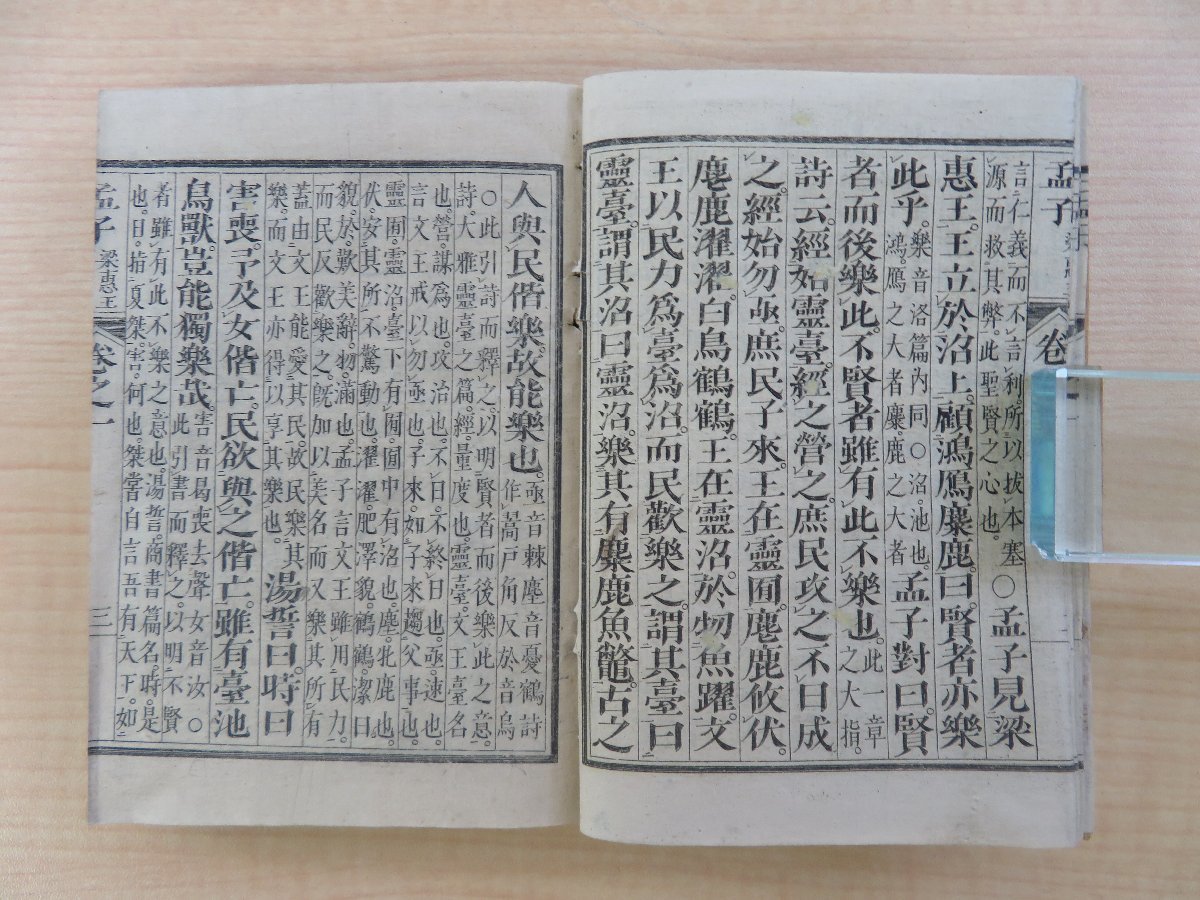 孟子
卷
言仁義而不言利所以拔本塞
源而救其弊。此聖賢之心也。
○孟子見梁
惠王。王立於沼上。顧鴻鴈麋鹿。曰。賢者亦樂
此乎。
樂音洛篇內同○沼。池也。
鴻。鴈之大者麋鹿之大者
孟子對曰。賢
者而後樂此。不賢者雖有此不樂也。
此一章
之大指。
詩云。經始靈臺。經之營之。庶民攻之。不日成
之。經始勿亟。庶民子來。王在靈囿。麀鹿攸伏。
麀鹿濯濯。白鳥鶴鶴。王在靈沼。於牣魚躍。文
王以民力爲臺爲沼。而民歡樂之。謂其臺曰
靈臺。謂其沼曰靈沼。樂其有麋鹿魚鼈。古之
人與民偕樂。故能樂也。
亟音棘麀音憂鶴詩
作翯戶角反於音烏
○此引詩而釋之。以明賢者而後樂此之意。
詩。大雅靈臺之篇。經。量度也。靈臺。文王臺名
也。營。謀爲也。攻。治也。不日。不終日也。亟。速也。
言文王戒以勿亟也。子來。如子來趨父事也。
靈囿。靈沼。臺下有囿。囿中有沼也。麀。牝鹿也。
伏。安其所不驚動也。濯濯。肥澤貌。鶴鶴。潔白
貌。於。歎美辭。牣。滿也。孟子言文王雖用民力。
而民反歡樂之。旣加以美名。而又樂其所有
蓋由文王能愛其民。故民樂其
樂。而文王亦得以享其樂也。
湯誓曰。時日
害喪。予及女偕亡。民欲與之偕亡。雖有臺池
鳥獸。豈能獨樂哉。
害音曷喪去聲女音汝○
此引書而釋之。以明不賢
者雖有此不樂之意也。湯誓。商書篇名。時。是
也。日。指夏桀。害。何也。桀嘗自言吾有天下。如
孟子 梁惠王 卷之一 三